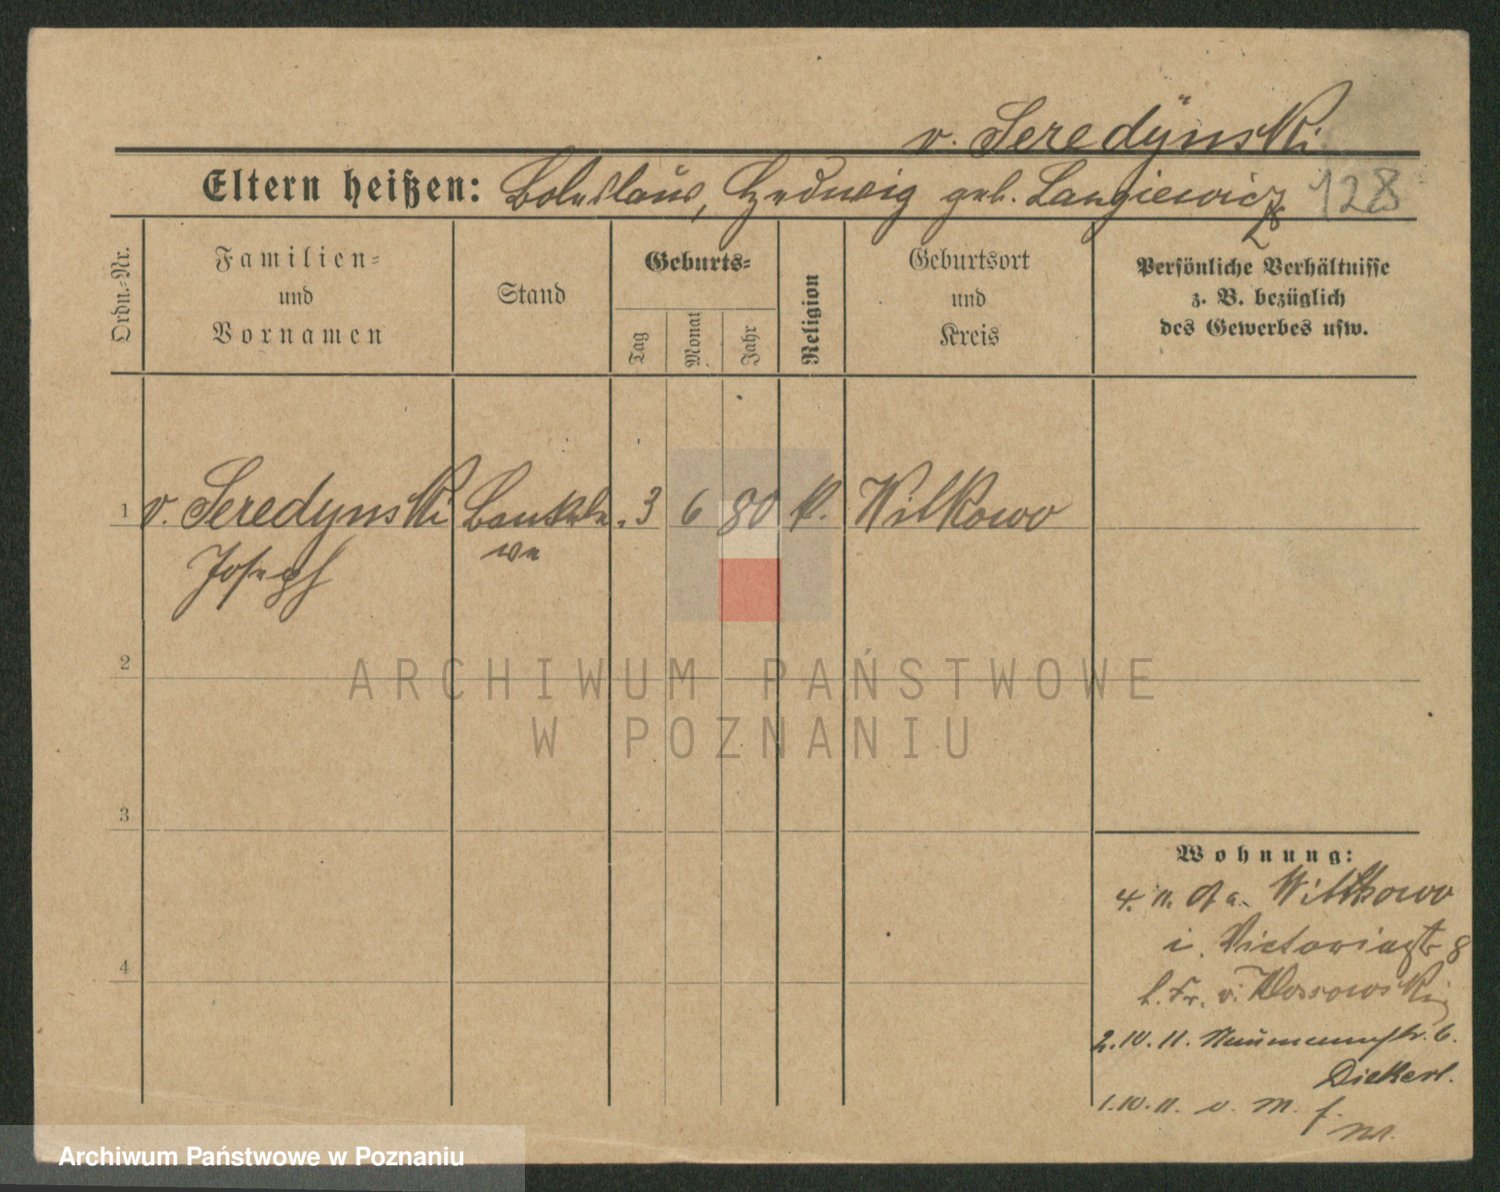 v. Seredÿnski
Eltern heißen: Boleslaus, Hedwig geb. Langiewicz
128
Ordn.-Nr.
Familien-
und
Vornamen
Stand
Geburts-
Tag
Monat
Jahr
Religion
Geburtsort
und
Kreis
Persönliche Verhältnisse
z. B. bezüglich
des Gewerbes usw.
1 v. Seredynski 3 6 80 k. Witkowo
Joseph
2
ARCHIWUM PAŃSTWOWE
W POZNANIU
3
4
Wohnung:
Witkowo
i. Victoriastr 8
b. Fr. v.
2.10.11. Naumannstr. 6.
Diekert.
1.10.11. v. M.
Archiwum Państwowe w Poznaniu